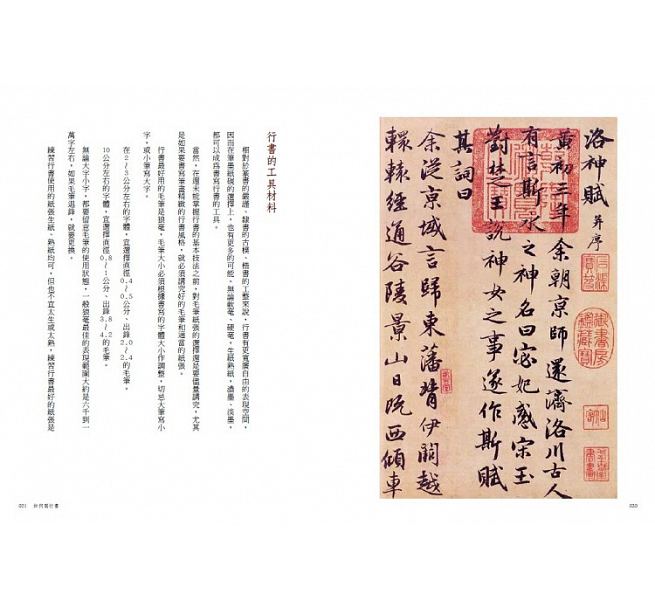 洛神賦 并序
黃初三年余朝京師還濟洛川古人
有言斯水之神名曰宓妃感宋玉
對楚王說神女之事遂作斯賦
其詞曰
余從京域言歸東藩背伊闕越
轘轅經通谷陵景山日既西傾車
御書房鑑藏寶
020
行書的工具材料
相對於篆書的嚴謹、隸書的古樸、楷書的工整來說，行書有更寬廣自由的表現空間，
因而在筆墨紙硯的選擇上，也有更多的可能。無論軟毫、硬毫，生紙熟紙，濃墨、淡墨，
都可以成為書寫行書的工具。
當然，在還未能掌握行書的基本技法之前，對毛筆紙張的選擇還是要儘量講究，尤其
是如果要書寫筆畫精緻的行書風格，就必須講究好的毛筆和適當的紙張。
行書最好用的毛筆是狼毫，毛筆大小必須根據書寫的字體大小作調整，切忌大筆寫小
字，或小筆寫大字。
在2~3公分左右的字體，宜選擇直徑0.4~0.5公分、出鋒2.0~2.4的毛筆。
10公分左右的字體，宜選擇直徑0.8~1公分、出鋒3.8~4.2的毛筆。
無論大字小字，都要留意毛筆的使用狀態，一般狼毫最佳的表現範圍大約是六千到一
萬字左右，如果毛筆退鋒，就要更換。
練習行書使用的紙張生紙、熟紙均可，但也不宜太生或太熟，練習行書最好的紙張是
021 如何寫行書